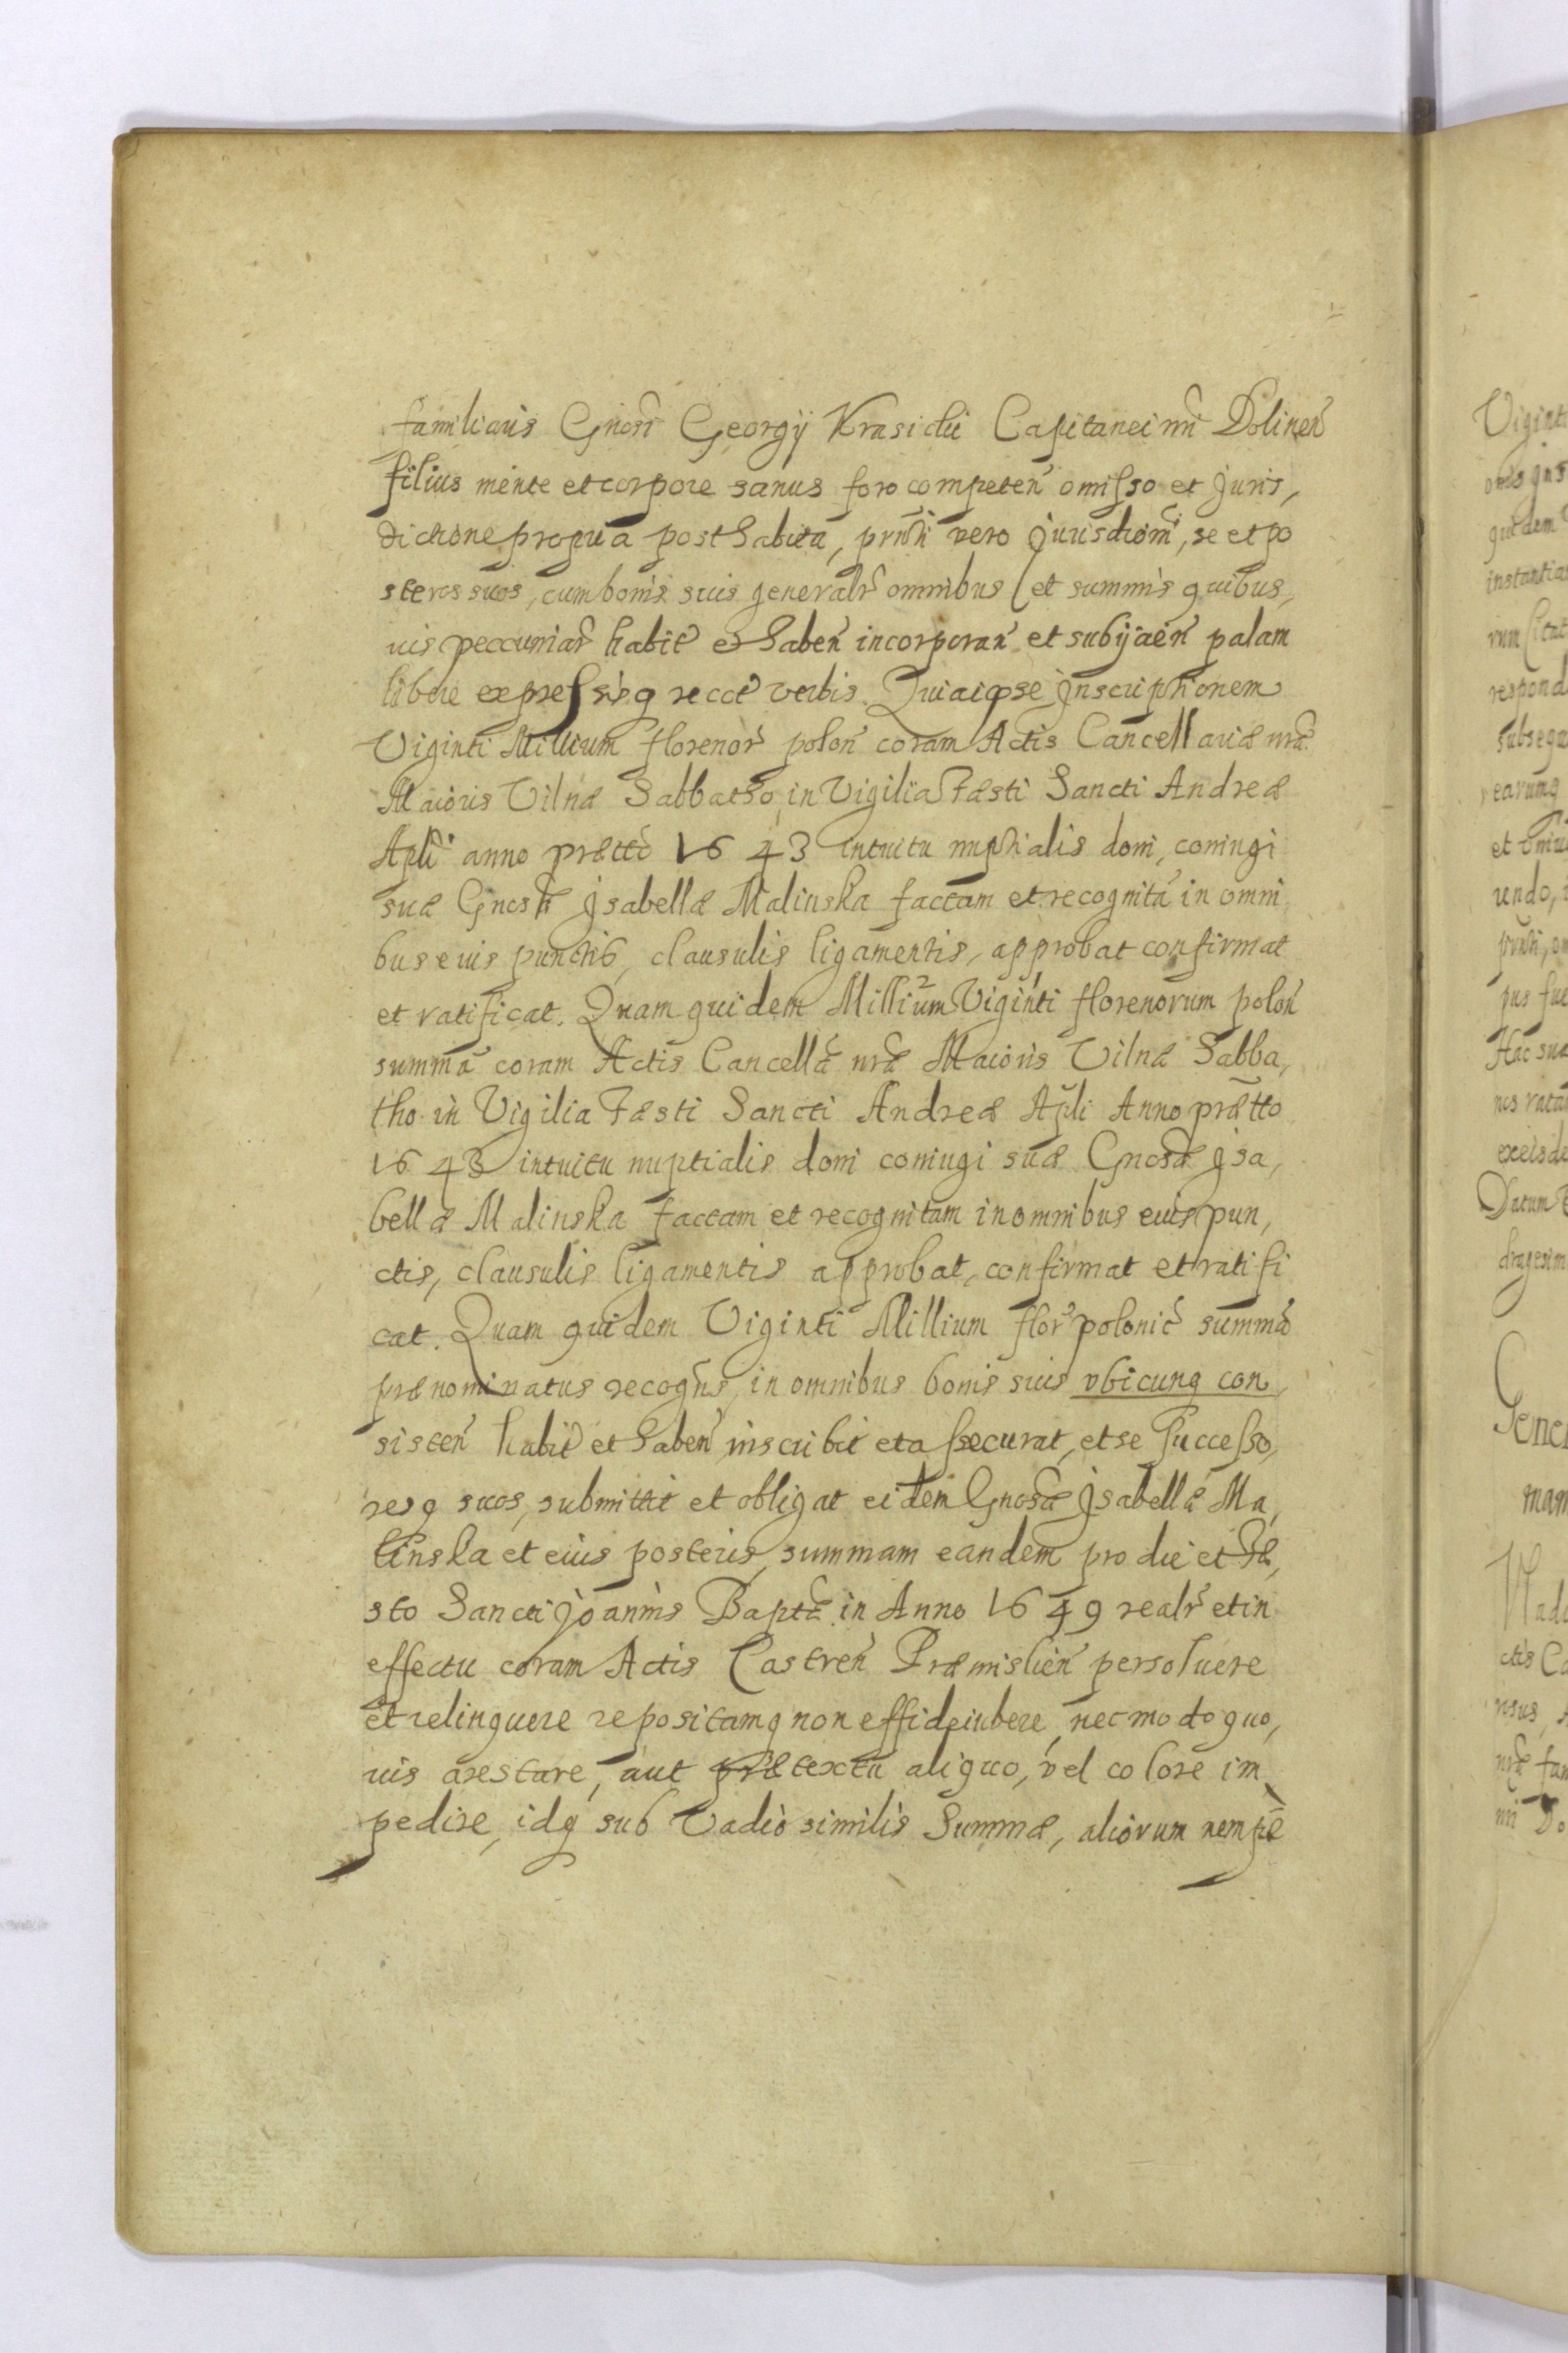 familiaris Gnosi Georgij Krasicki Capitanei nri Dolinen
filius mente et corpore sanus foro competen omisso et Juris,
dictione propria posthabita, prnti vero Jurisdioni, se et po
steros suos, cum bonis suis generalr omnibus (et summis quibus,
uis peccuniar habit et haben incorporan et subijcien palam
libere expressisq recct verbis. Quia ipse Jnscriptionem
Viginti Millium florenor polon coram Actis Cancellariæ nræ
Maioris Vilnæ Sabbatho in Vigilia Fæsti Sancti Andreæ
Apli anno prætto 1643 intuitu nuptialis doni, coniugi
suæ Gnosæ Jsabellæ Malinska factam et recognitã in omni
bus eius punctis, clausulis ligamentis, approbat confirmat
et ratificat. Quam quidem Millium Viginti florenorum polon
summã coram Actis Cancellæ nræ Maioris Vilnæ Sabba,
tho in Vigilia Fæsti Sancti Andreæ Apli Anno prætto
1643 intuitu nuptialis doni coniugi suæ Gnosæ Jsa,
bellæ Malinska factam et recognitam in omnibus eius pun,
ctis, clausulis ligamentis approbat, confirmat et ratifi
cat. Quam quidem Viginti Millium flor polonic summã
prænominatus recogns, in omnibus bonis suis vbicunq con,
sisten habit et haben inscribit et assecurat, et se Successo,
resq suos, submittit et obligat eidem Gnosæ Jsabellæ Ma,
linska et eius posteris, summam eandem pro die et Fæ,
sto Sancti Joannis Baptæ in Anno 1649 realr et in
effectu coram Actis Castren Præmislien persoluere
et relinquere repositamq non effideiubere, nec modo quo,
uis arestare, aut prætextu aliquo, vel colore im
pedire, idq sub Vadio similis Summæ, aliorum nempe